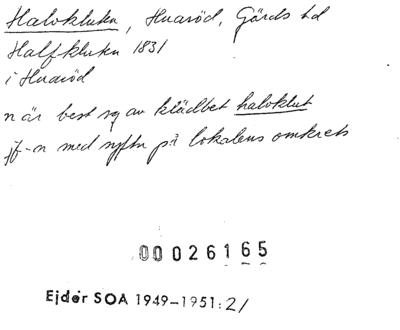 Halvkluken, Huaröd, Gärds hd
Halfkluken 1831
i Huaröd
n är best sg av klädbet halvklut
jf-n med syftn på lokalens omkrets
00026165
Ejder SOA 1949-1951:2/